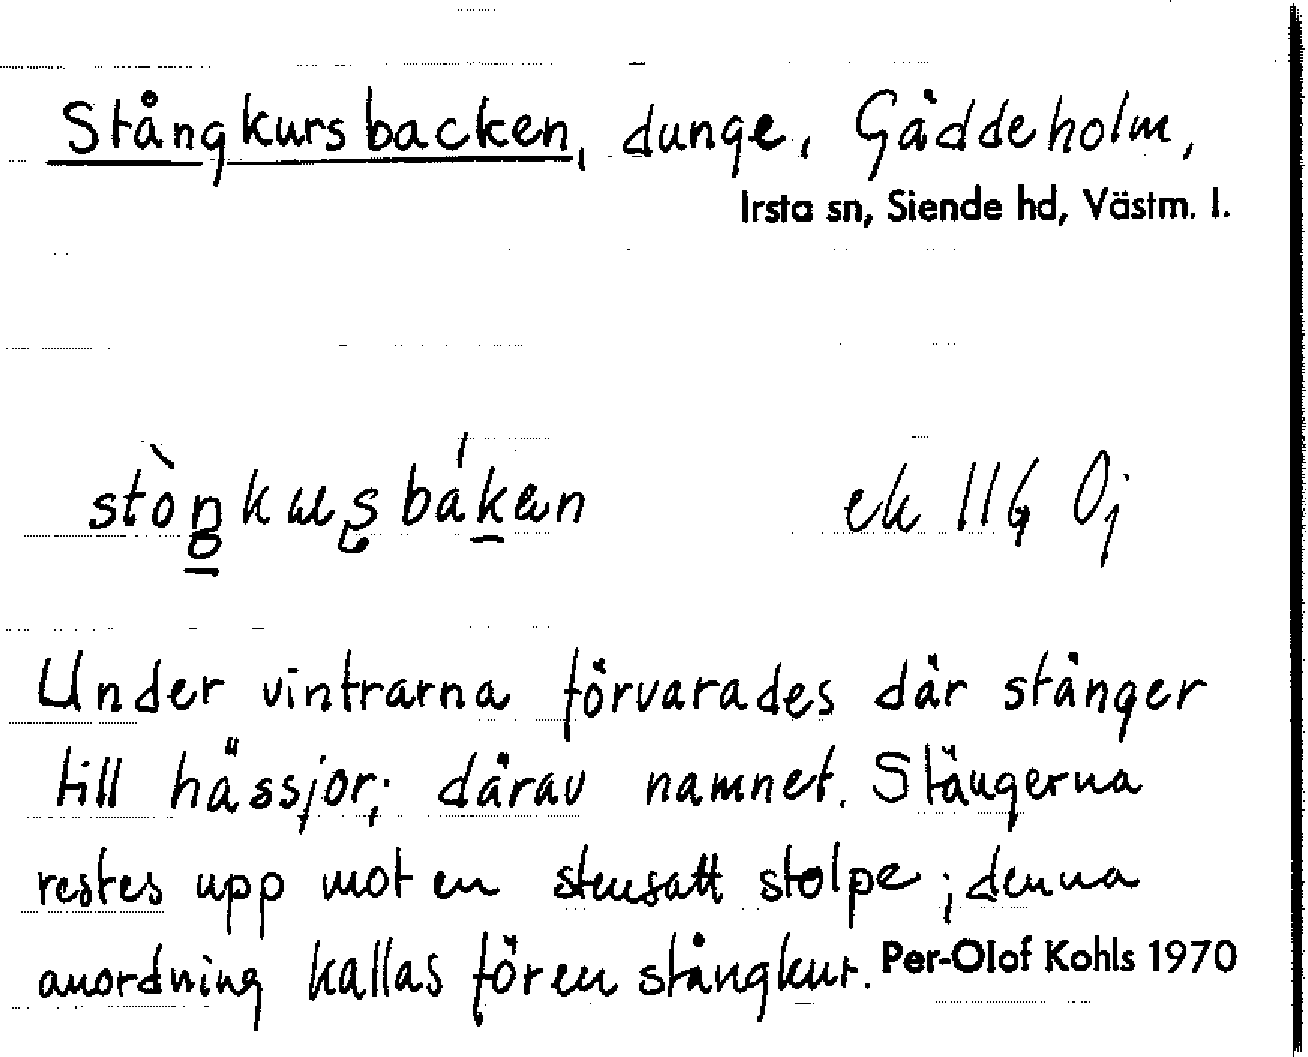 Stångkursbacken, dunge, Gäddeholm,
Irsta sn, Siende hd, Västm. l.
stòŋkuʂbákən ek 11G 0j
Under vintrarna förvarades där stänger
till hässjor; därav namnet. Stängerna
restes upp mot en stensatt stolpe; denna
anordning kallas för en stångkur. Per-Olof Kohls 1970